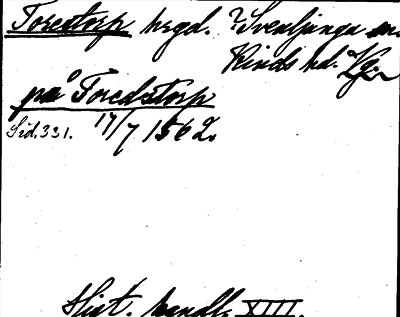 Toredstorp hrgd. ? Svenljunga sn.
Kinds hd. Vg.
på Toredstorp
Sid. 331. 17/7 1562.
Hist. handl. XIII.